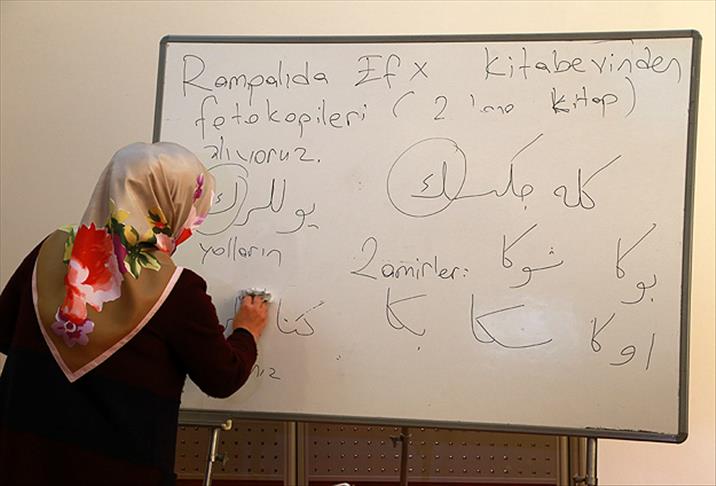 Rampalıda Efx Kitabevinden
fotokopileri (2 kitap)
alıyoruz.
كله جكسك
يوللرك
yolların
Zamirler: بوكا شوكا
اوكا سكا بكا